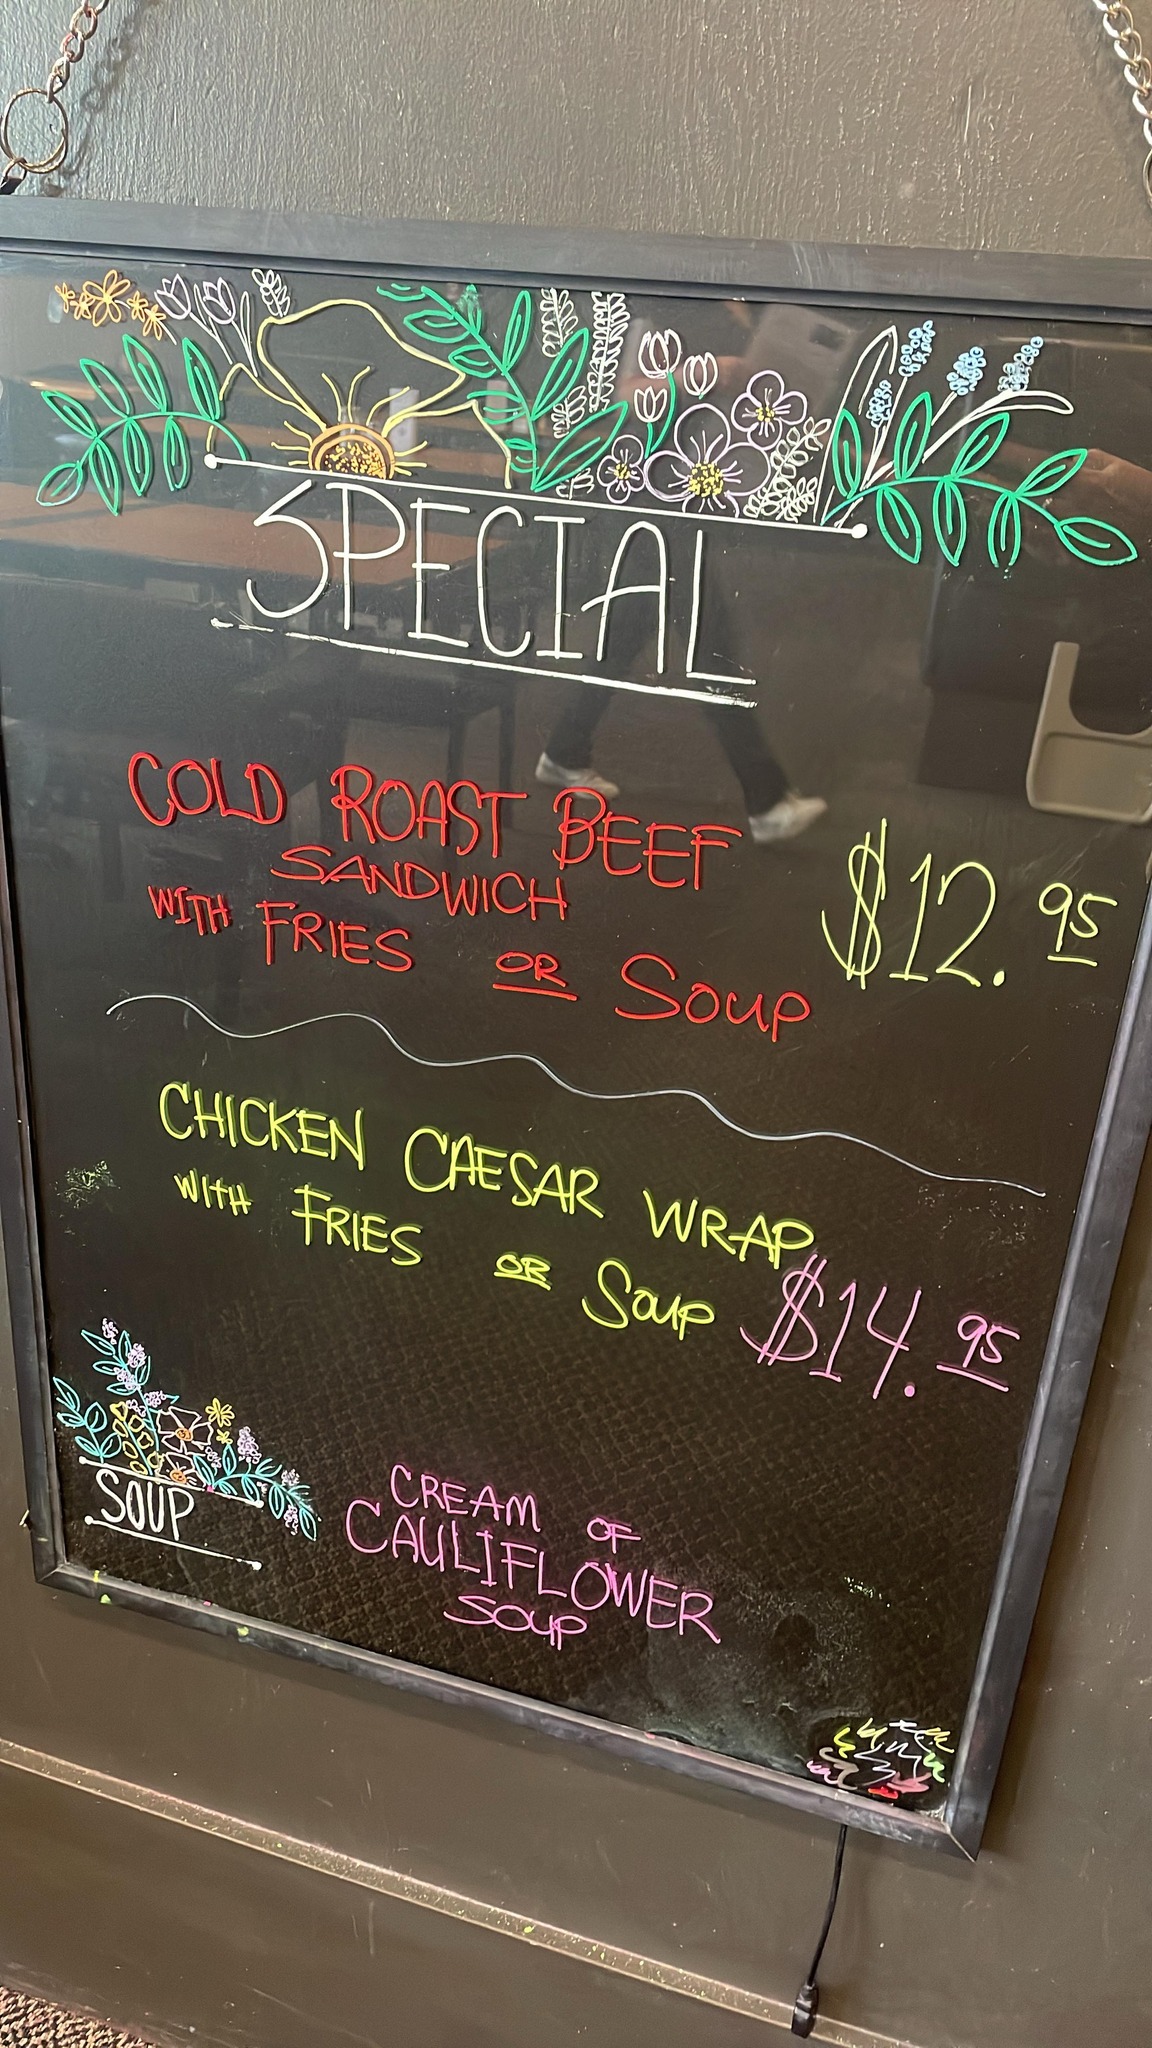 SPECIAL
COLD ROAST BEEF
SANDWICH
WITH FRIES OR SOUP
$12.95
CHICKEN CAESAR WRAP
WITH FRIES OR SOUP
$14.95
SOUP
CREAM OF
CAULIFLOWER
SOUP